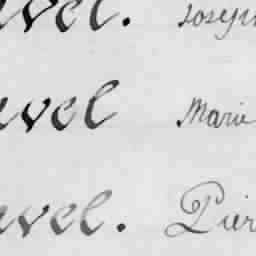 avel. Joseph
avel Marie
avel. Pier